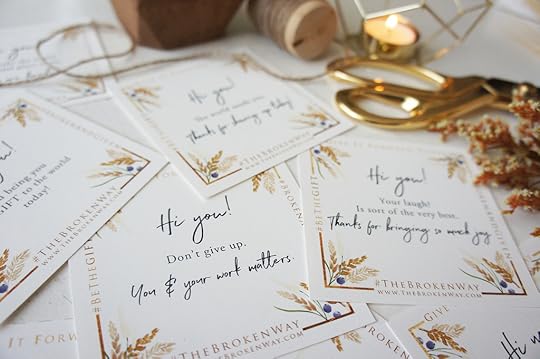 Hi you!
The world needs you.
Thanks for showing up today!
#TheBrokenWay
being you
GIFT to the world
today!
#TheBrokenWay
Hi you!
Don't give up.
You & your work matters.
#BeTheGift
#TheBrokenWay
www.TheBrokenWay.com
Hi you!
Your laugh!
Is sort of the very best.
Thanks for bringing so much joy.
#BeTheGift
#TheBrokenWay
www.TheBrokenWay.com
It Forward
Give
Hi you!